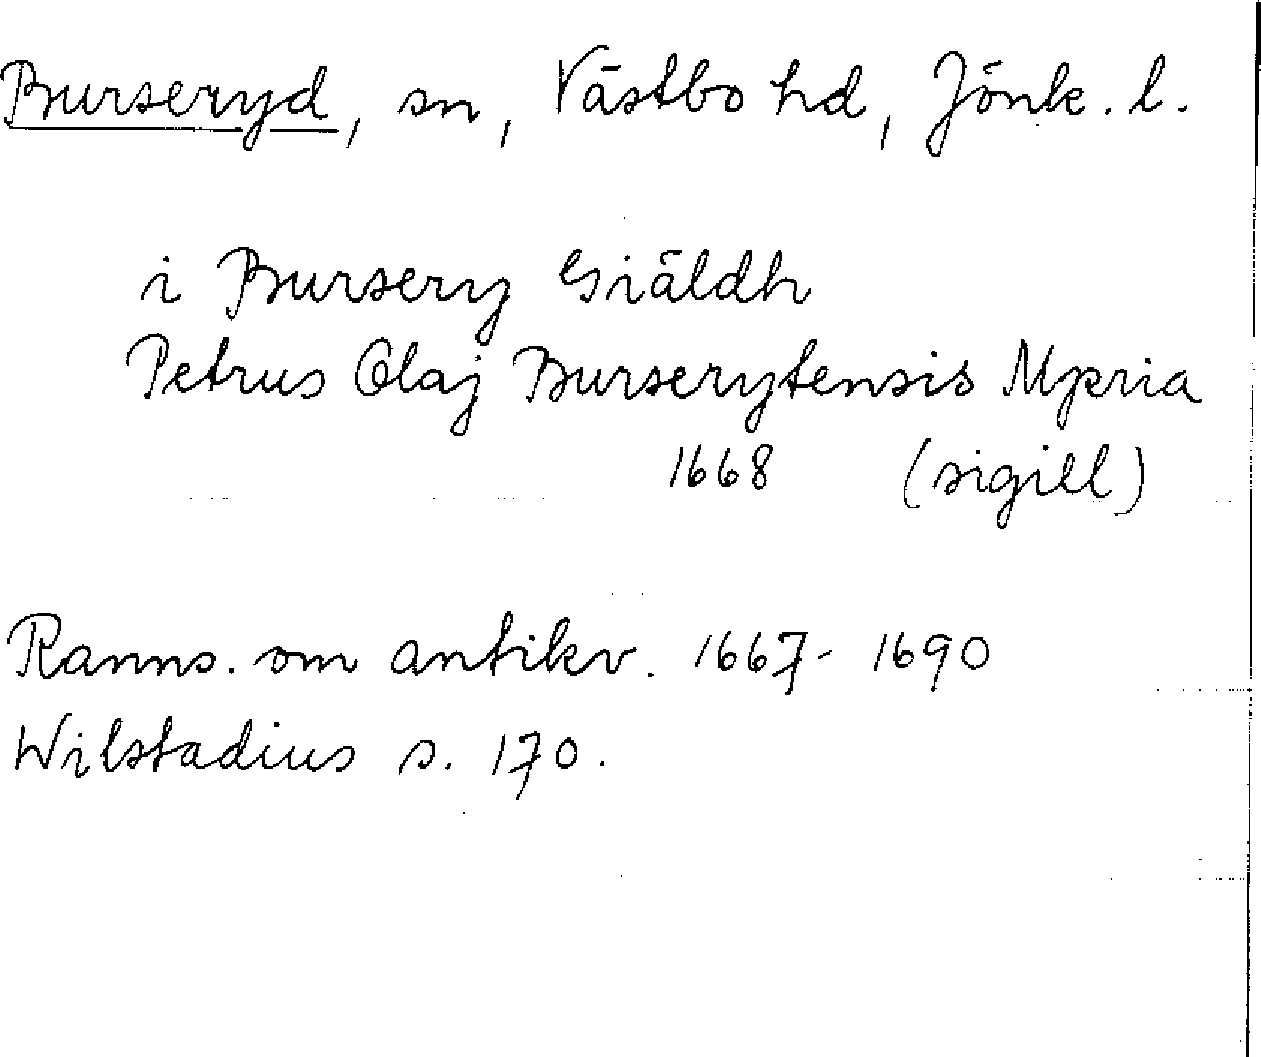 Burseryd, sn, Västbo hd, Jönk. l.
i Bursery Giäldh
Petrus Olaj Burserytensis Mpria
1668 (sigill)
Ranns. om antikv. 1667-1690
Wilstadius s. 170.